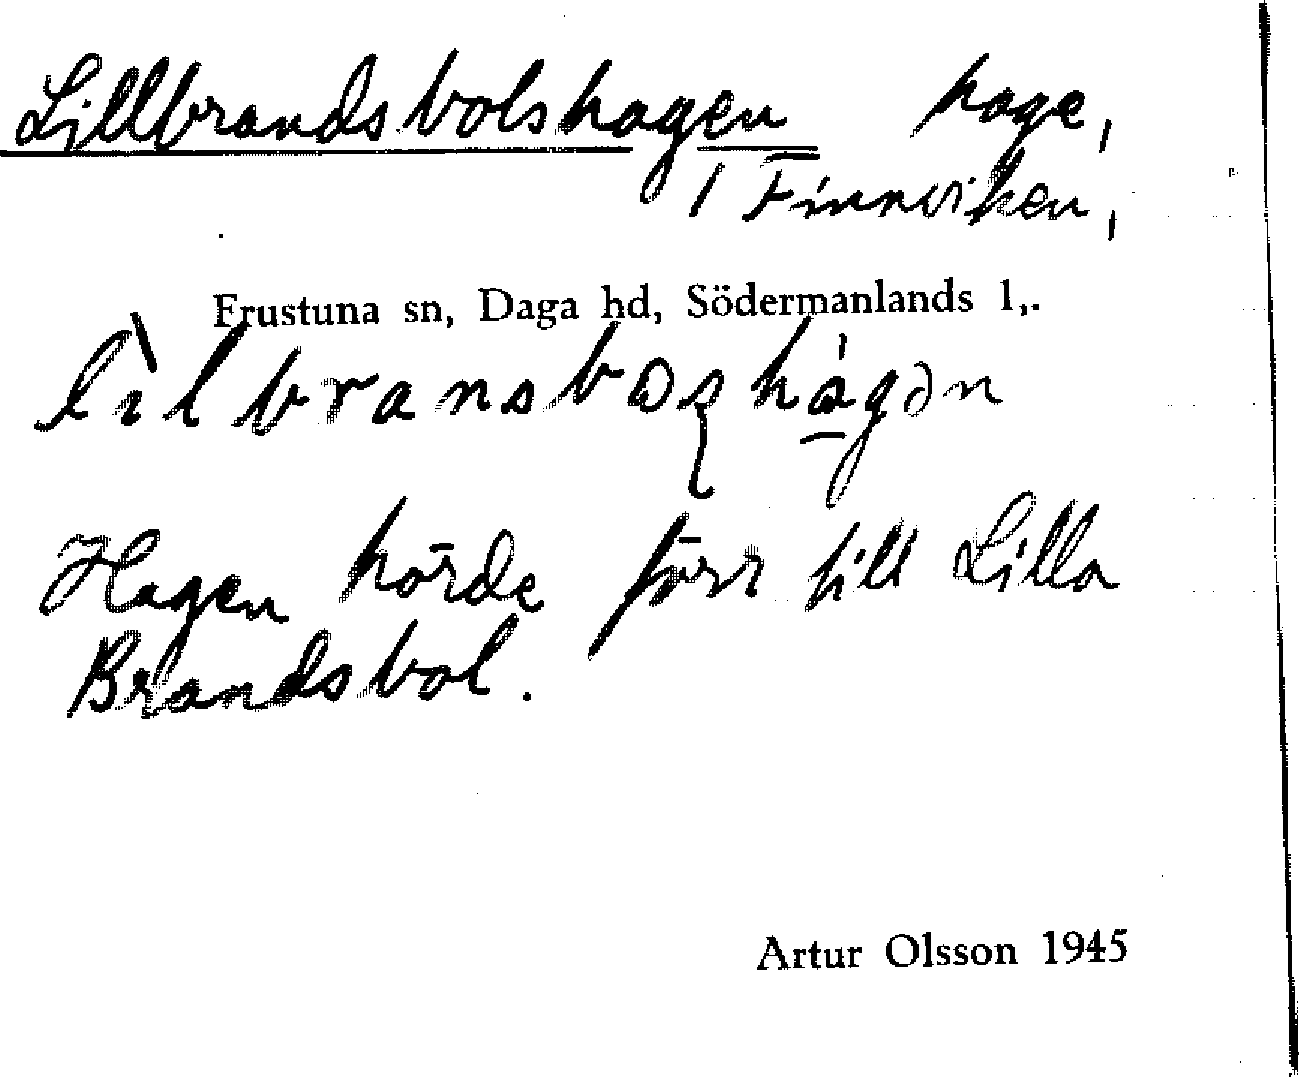 Lillbrandsbolshagen hage,
1 Finnviken,
Frustuna sn, Daga hd, Södermanlands l,.
Hagen hörde förr till Lilla
Brandsbol.
Artur Olsson 1945